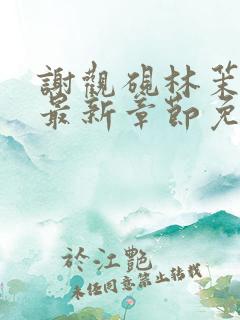 謝觀硯林茉
最新章節免
於江艷
未经同意禁止转载